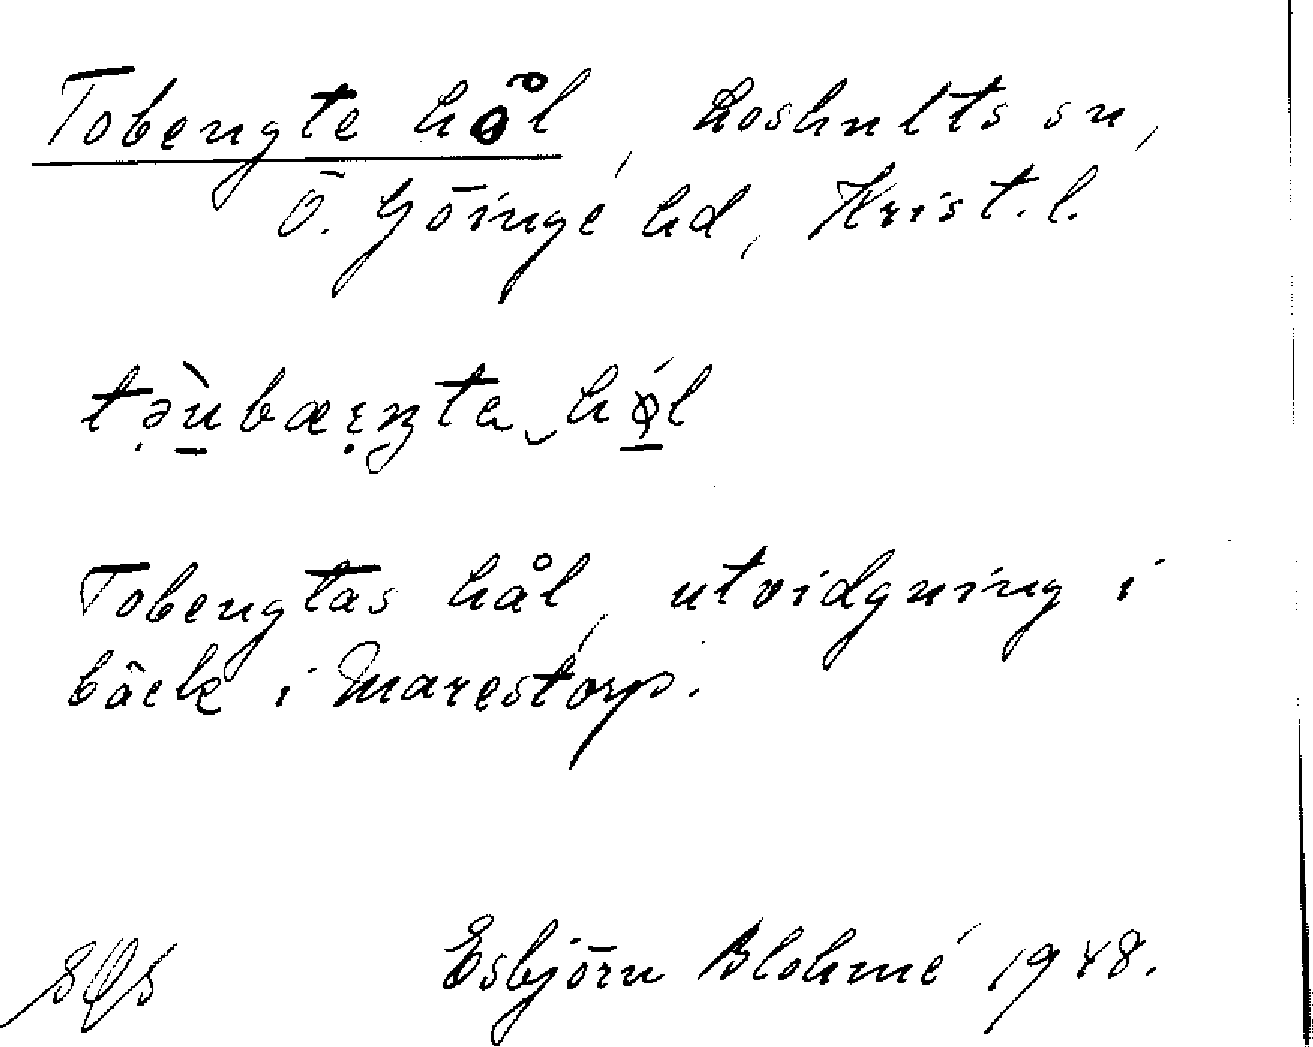 Tobengte hål, Loshults sn,
Ö. Göinge hd, Krist. l.
Tobengtas hål, utvidgning i
bäck i Marestorp.
Esbjörn Blohmé 1948.